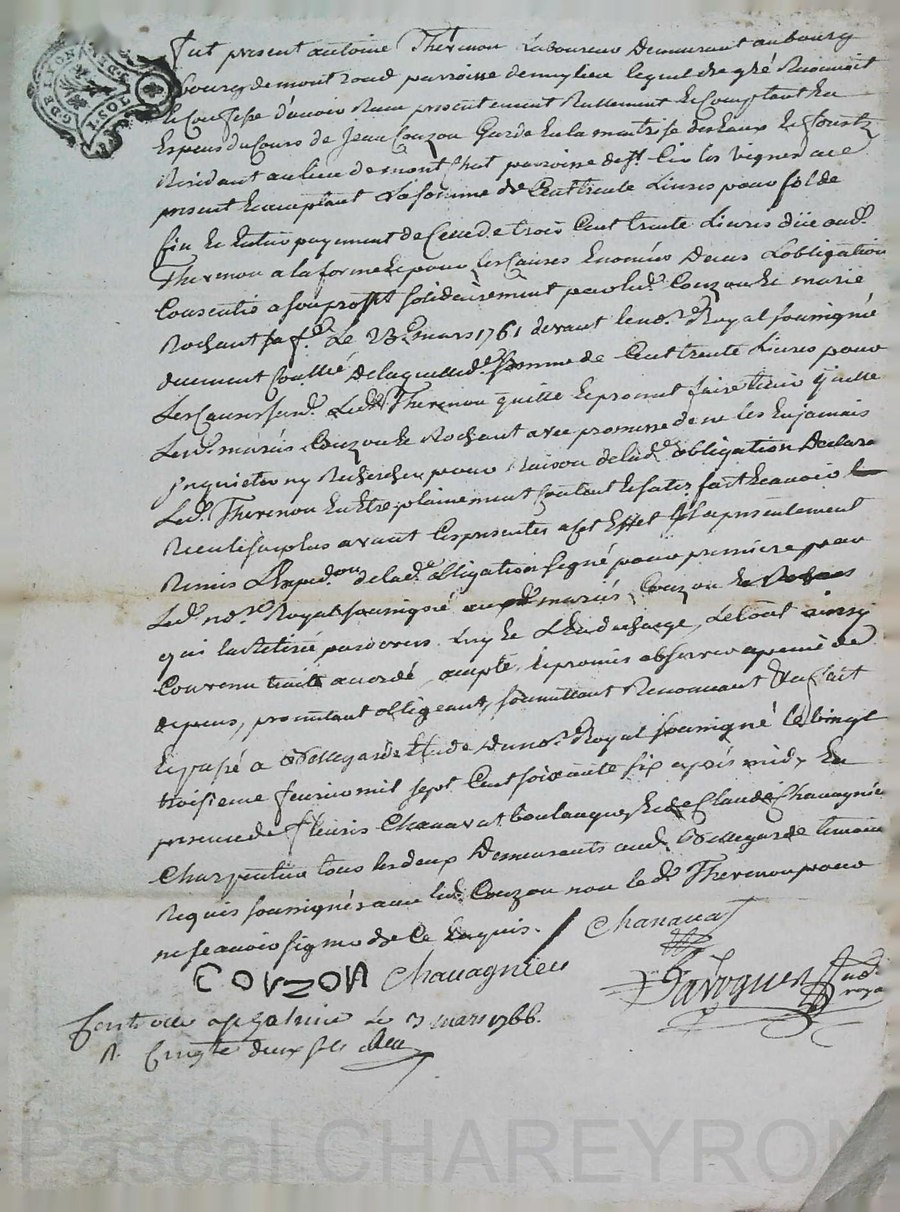 GDE LYON
Fut present antoine Thevenon Laboureur Demeurant au bourg
bourg de montrond parroisse de meylieu lequel de gré Reconnoit
et Confesse d'avoir Reçu presentement Rellement et Comptant en
Especes du Cours de Jean Couzon Garde En la maitrise des Eaux et forets
Residant au lieu de montShat paroisse de St. Cir les vignes ace
present Et acceptant La somme de Cent trente Livres pour solde
fin Et Entier payement de Celle de trois Cent trente Livres düe aud.
Thevenon a la forme Et pour les Causes Enoncées Dans L'obligation
Consentie a son proffit solidairement par led. Couzon Et marie
Rochant sa fe. Le 23e mars 1761 devant le no.re Royal soussigné
duement Conllé De laquelle de. somme de Cent trente Livres pour
Les Causes sus d. Led. Thevenon quitte Et promet faire tenir quitte
Les d. mariés Couzon Et Rochant avec promesse de ne les En jamais
jnquieter ny Rechercher pour Raison de lad.e obligation Declare
Led. Thevenon En Etre plainement Content Et satisfait Et avoir
Receu le surplus avant Ces presentes a Cet Effet Il a presentement
Remis L'Exped.on de lad.e obligation signé pour premiere par
Led. no.re Royal soussigné aux d. mariés Couzon Et
qui L'a Retirée pardevers Luy Et L'En decharge, Letout ainsy
Convenu traité accordé, accepté, Et promis observer a peine de
depens, promettant obligeant, soumettant Renonceant &a fait
Et passé a Bellegarde Etude Du no.re Royal soussigné le vingt
troisieme fevrier mil sept Cent soixante six après midy En
presence de fleuris Chanavat boulanger, Et de Claude Chavagnieu
Charpentier tous les deux Demeurants aud. Bellegarde temoins
Requis soussignés avec led. Couzon non le d. Thevenon pour
ne sçavoir signer de Ce Enquis.
Chanavat
COUZON Chavagnieu
Javogues
no.
roya
Controllé a st Galmier Le 3 mars 1766.
R